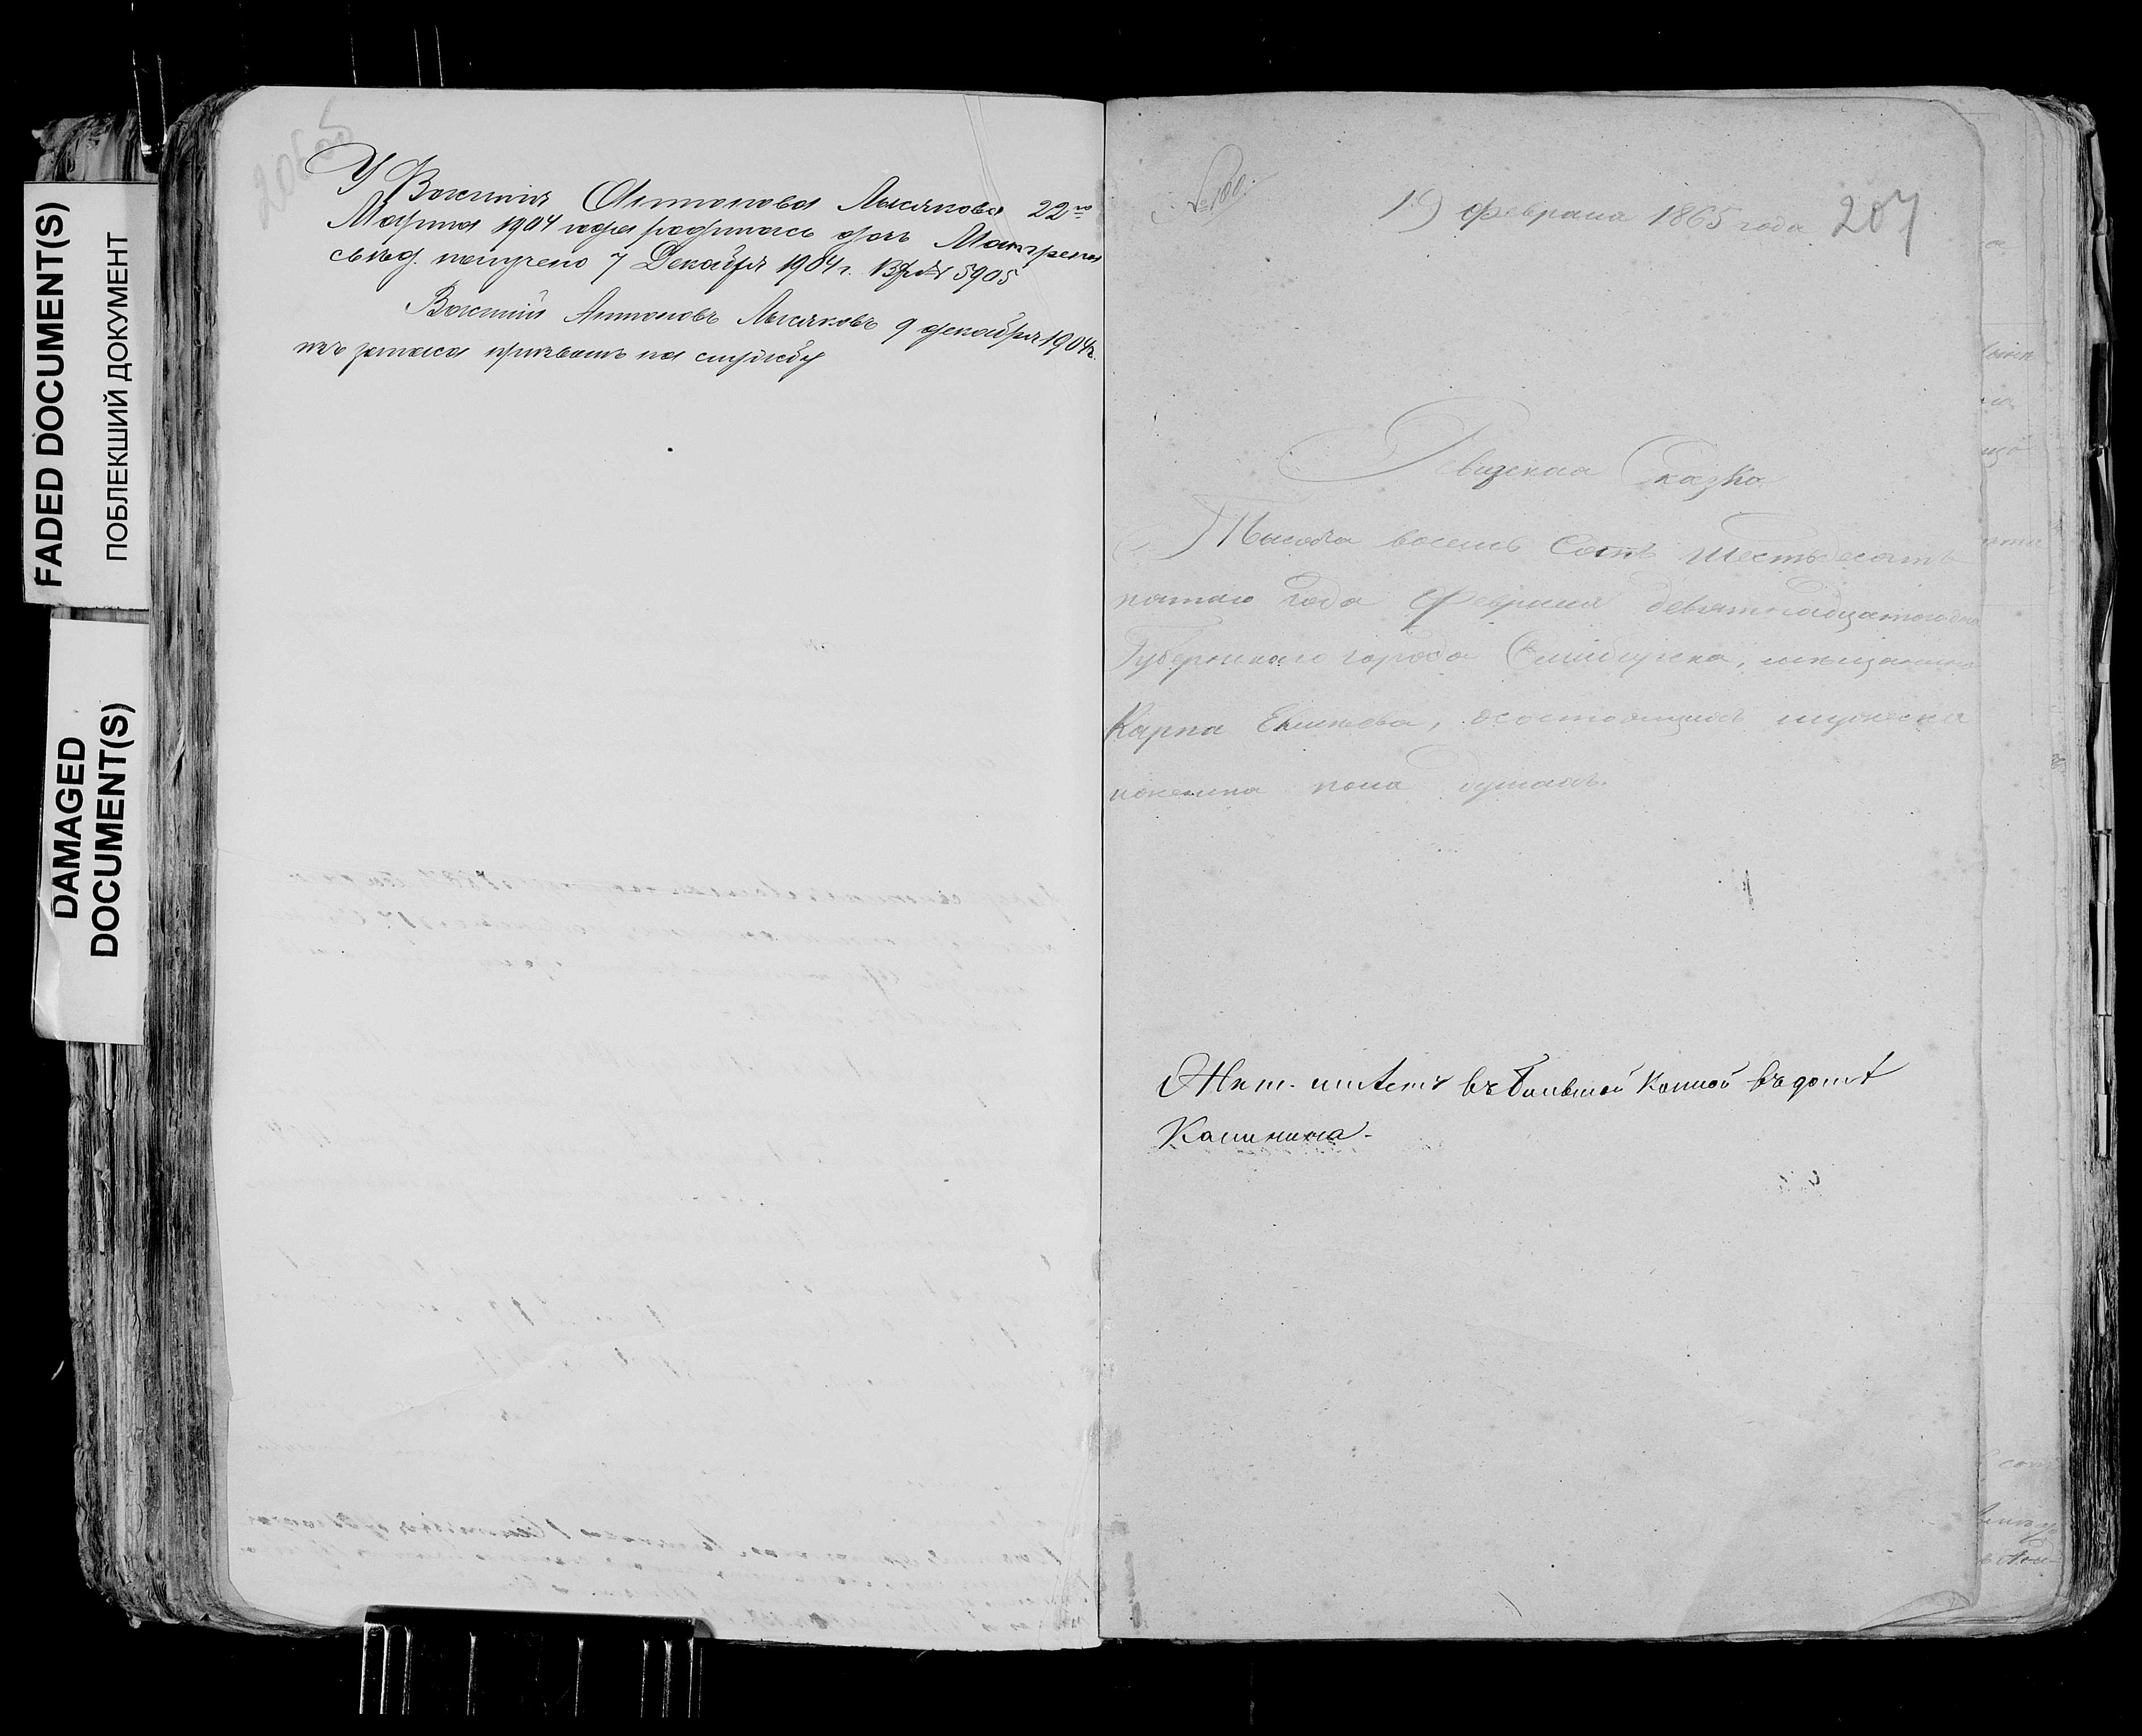 FADED DOCUMENT(S)
ПОБЛЕКШИЙ ДОКУМЕНТ
DAMAGED
DOCUMENT(S)
У Василія Антонова Лысякова 22го
Марта 1904 года родилась дочь
свѣд. получено 7 Декабря 1904 г. Вх. № 5905
Василій Антоновъ Лысяковъ 9 декабря 1904 г.
изъ запаса призванъ на службу
№ 100.
19 февраля 1865 года 207
Ревизская Сказка
Тысяча восемь Сотъ Шестьдесятъ
пятаго года Февраля девятнадцатого дня
Губернскаго города Симбирска, мѣщанина
Карпа, о состоящихъ мужеска
и женска пола душахъ.
Жит. имѣетъ въ Большой Конной въ домѣ
Калинина.